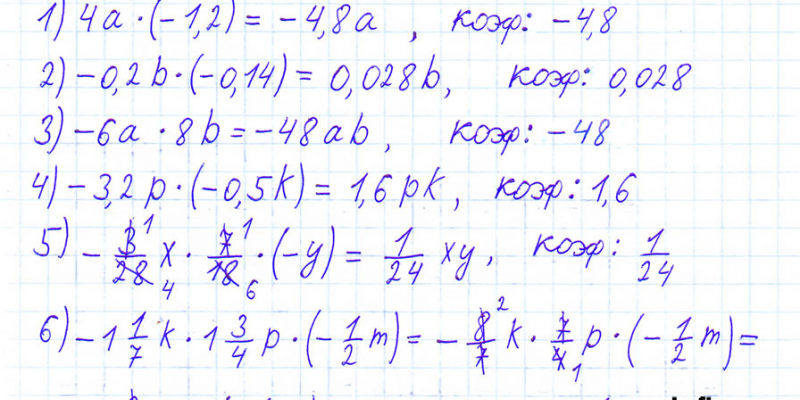 1) 4a · (−1,2) = −4,8a , коэф: −4,8
2) −0,2b · (−0,14) = 0,028b, коэф: 0,028
3) −6a · 8b = −48ab, коэф: −48
4) −3,2p · (−0,5k) = 1,6pk, коэф: 1,6
5) −3/28 x · 7/18 · (−y) = 1/24 xy, коэф: 1/24
6) −1 1/7 k · 1 3/4 p · (−1/2 m) = −8/7 k · 7/4 p · (−1/2 m) =